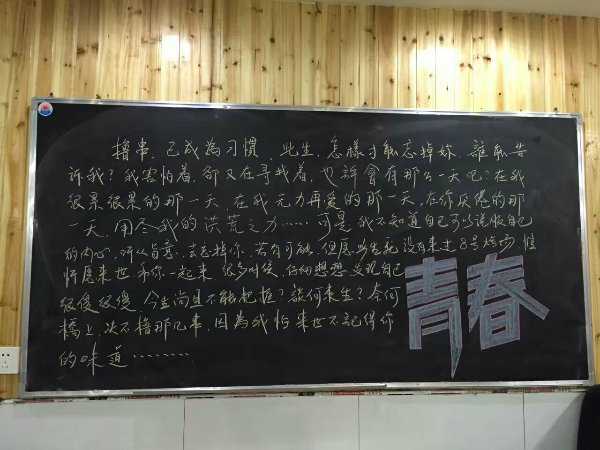 撸串,已成為习慣,此生,怎樣才能忘掉妳,誰能告
訴我?我害怕着,卻又在尋找着,也許會有那么一天吧?在我
很累很累的那一天,在我无力再爱的那一天,在你厌倦的那
一天,用尽我的洪荒之力……可是,我不知道自己可以说服自己
的内心,所以肯定,去忘掉你,若有可能,但愿此生就没有来过8号烤场
怀愿来世和你一起来,很多时候,仔细想想,发现自己
很傻很傻,今生尚且不能把握?談何来生?奈何
橋上,决不撸那几串,因為我怕来世不記得你
的味道………
青春